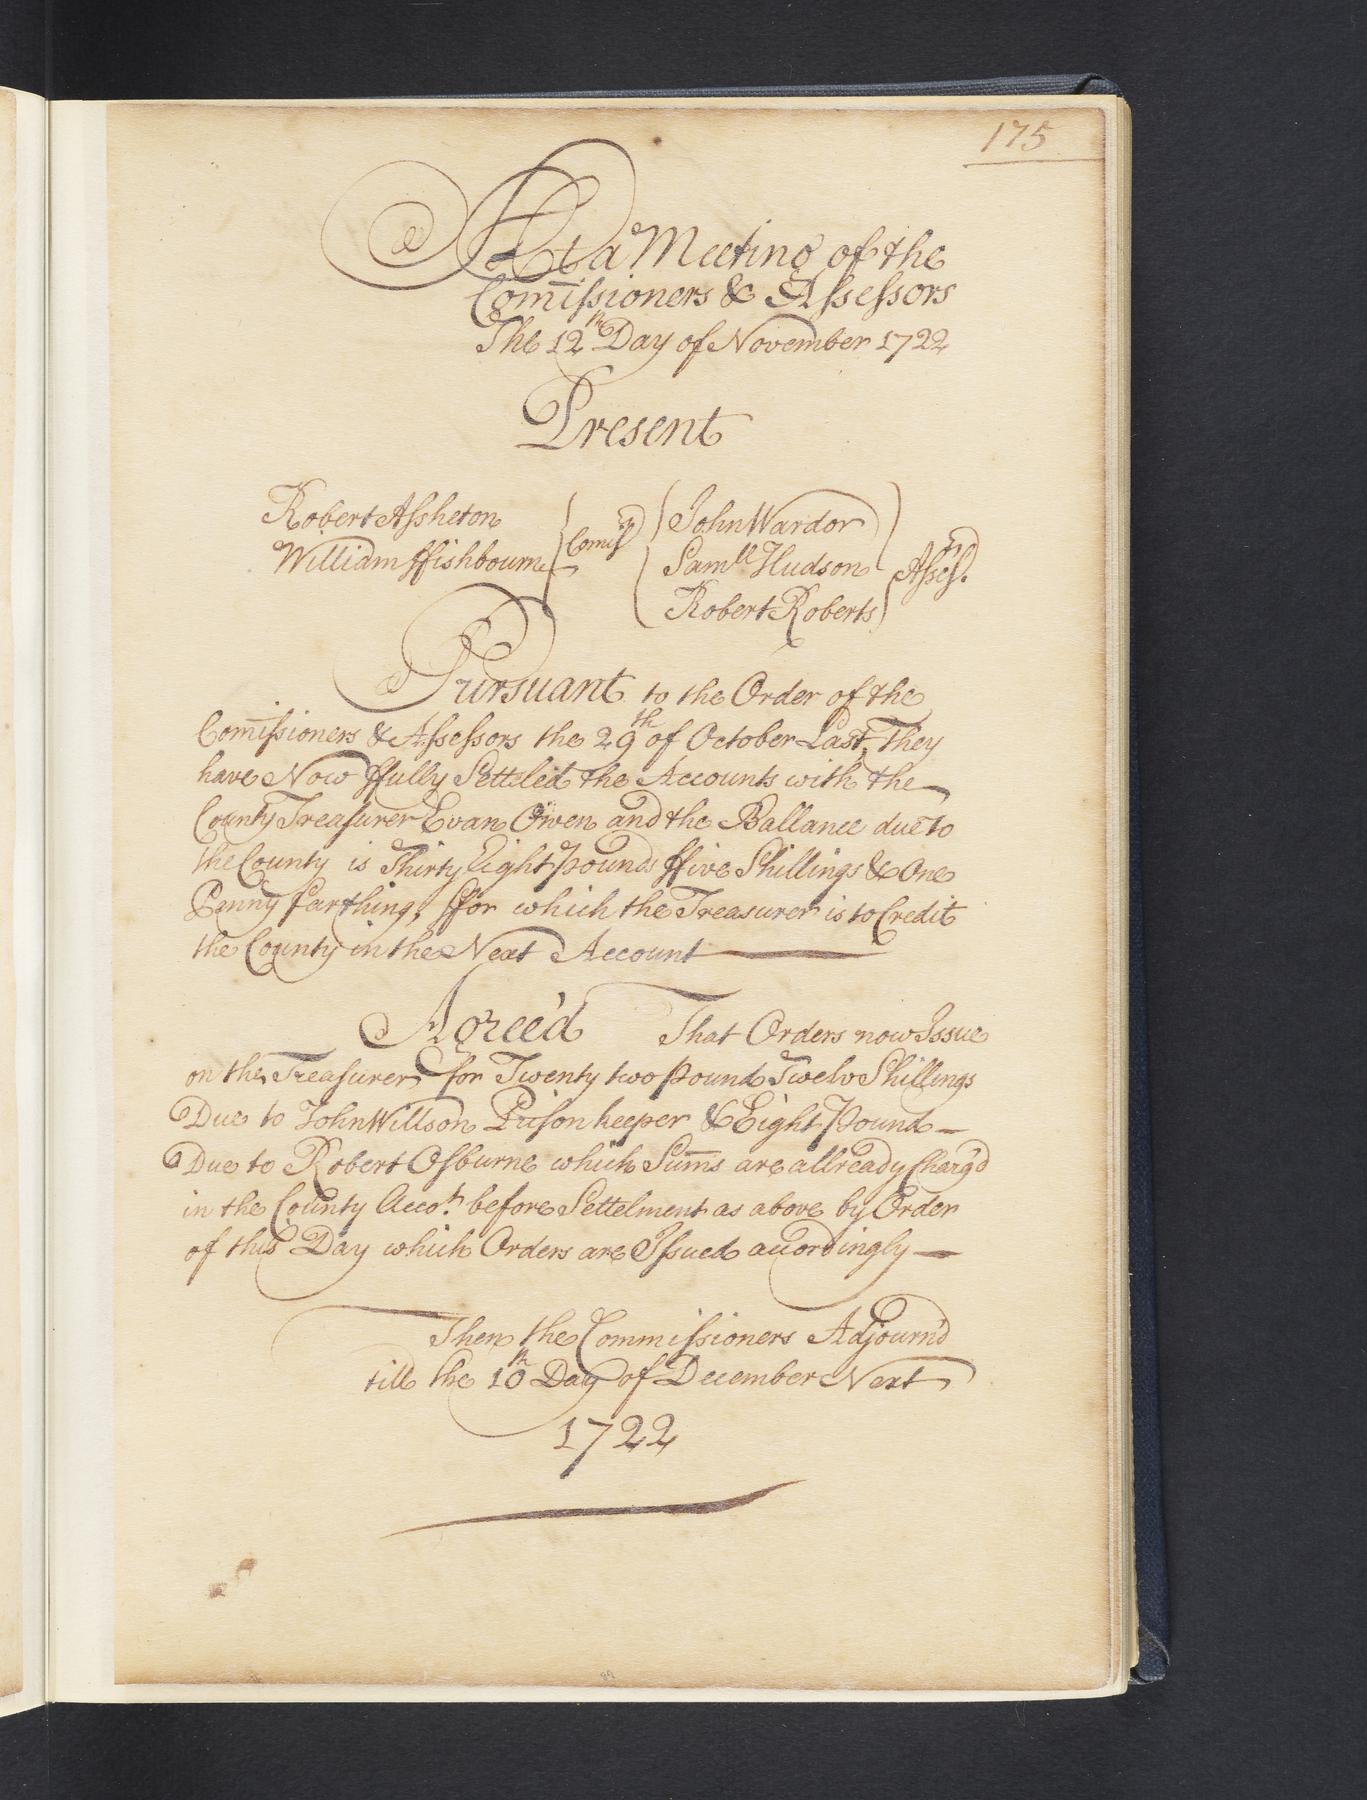 175
At a Meeting of the
Com̄issioners & Assessors
The 12th Day of November 1722
Present
Robert Assheton
William ffishbourne
Comissrs
John Wardor
Samll Hudson
Robert Roberts
Assessrs.
Pursuant to the Order of the
Com̄issioners & Assessors the 29th of October Last, They
have Now ffully Setteled the Accounts with the
County Treasurer Evan Owen and the Ballance due to
the County is Thirty Eight pounds ffive Shillings & One
Penny farthing, ffor which the Treasurer is to Credit
the County in the Next Account
Agree'd That Orders now Issue
on the Treasurer for Twenty two pound Twelve Shillings
Due to John Willson Prison keeper & Eight Pound
Due to Robert Osburne which Sum̄s are allready Charg'd
in the County Accots. before Settelment as above by Order
of this Day which Orders are Issued acordingly
Then the Commissioners Adjourn'd
till the 10th Day of December Next
1722
89